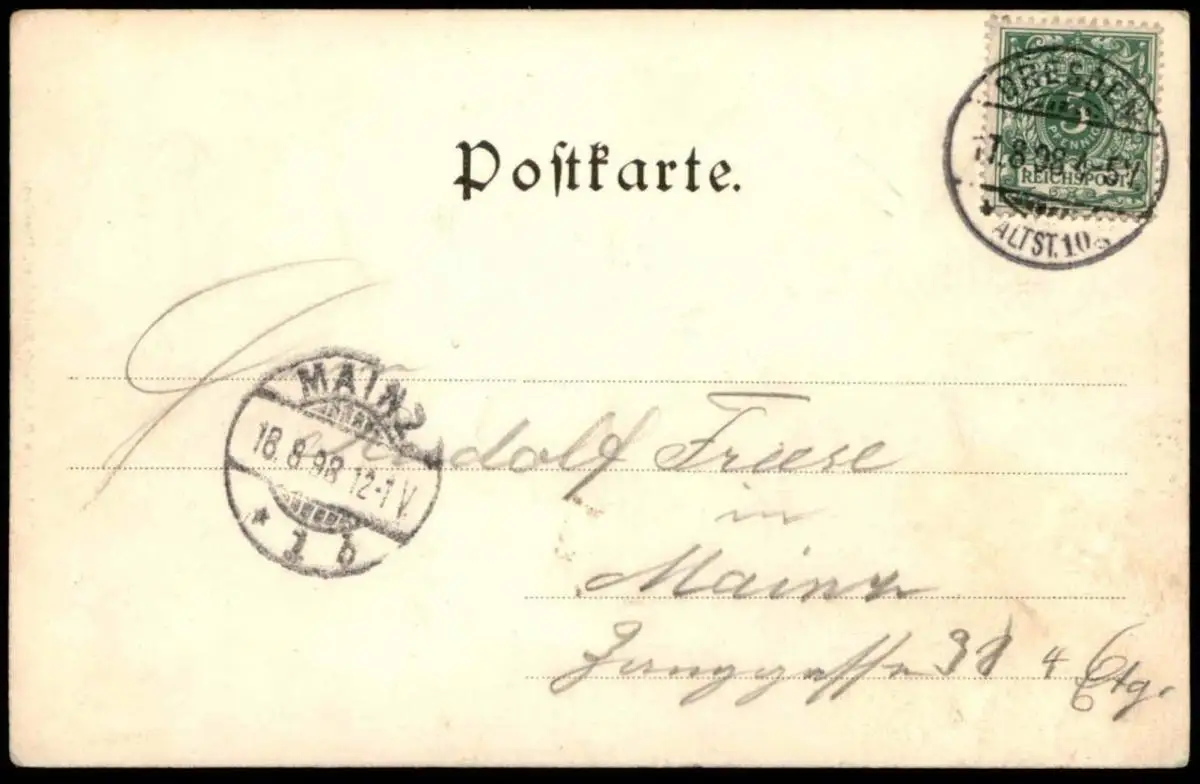 5
PFENNIG
REICHSPOST
DRESDEN
17.8.98 4-5V
ALTST. 10
Postkarte.
MAINZ
18.8.98 12-1 V.
* 1 b
Rudolf Friese
in
Mainz
4 Etg.